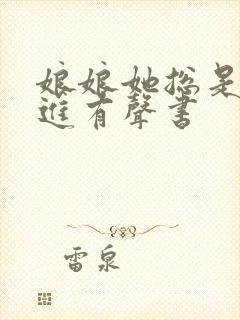 娘娘她総是
進有聲書
雷泉